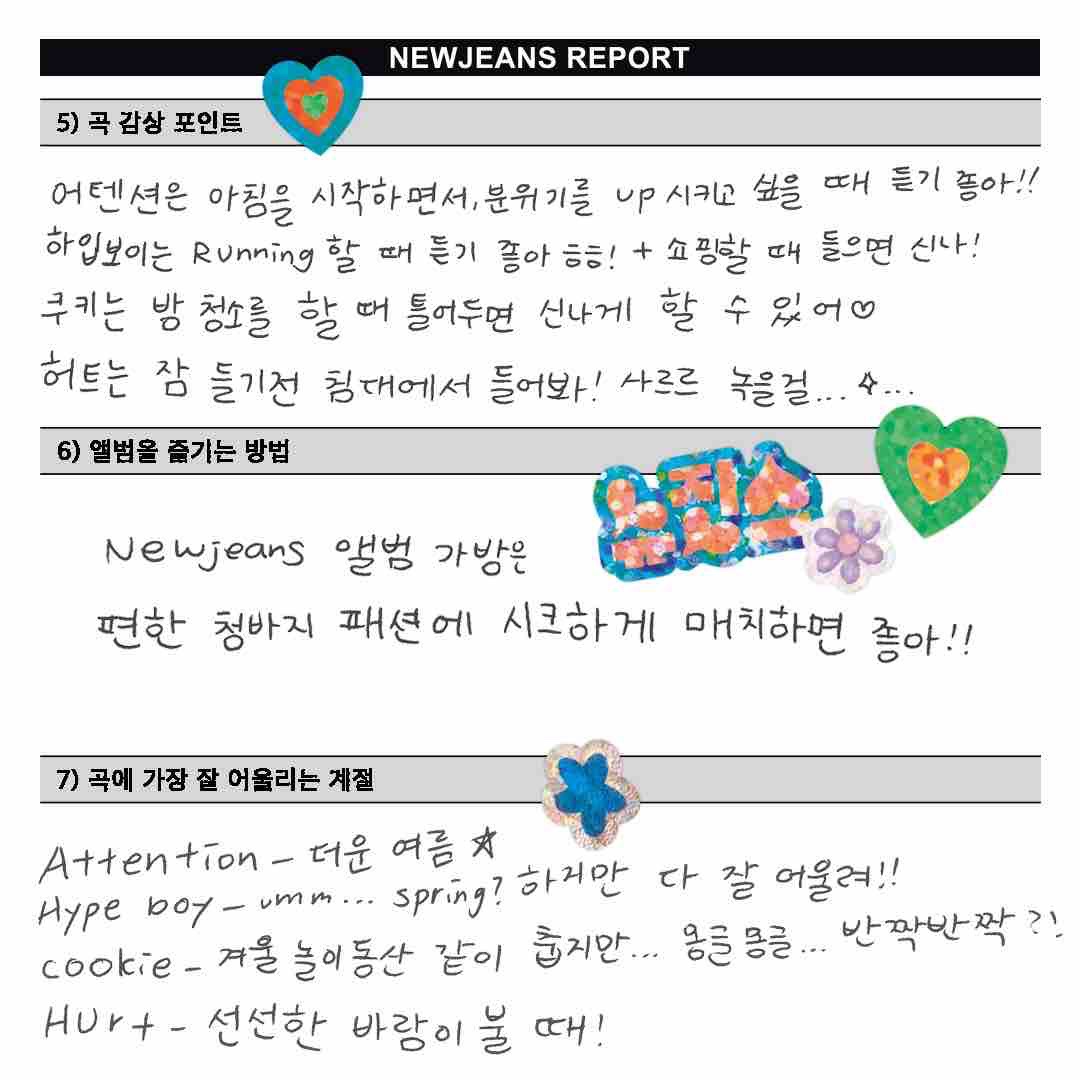 NEWJEANS REPORT
5) 곡 감상 포인트
어텐션은 아침을 시작하면서, 분위기를 up 시키고 싶을 때 듣기 좋아!!
하입보이는 Running 할 때 듣기 좋아 흠흠! + 쇼핑할 때 들으면 신나!
쿠키는 밤 청소를 할 때 틀어두면 신나게 할 수 있어♡
허트는 잠 들기전 침대에서 들어봐! 사르르 녹을걸...✧...
6) 앨범을 즐기는 방법
뉴진스
Newjeans 앨범 가방은
편한 청바지 패션에 시크하게 매치하면 좋아!!
7) 곡에 가장 잘 어울리는 계절
Attention - 더운 여름 ☆
Hype boy - umm... spring? 하지만 다 잘 어울려!!
cookie - 겨울 놀이동산 같이 춥지만... 몽글몽글... 반짝반짝?!
Hurt - 선선한 바람이 불 때!